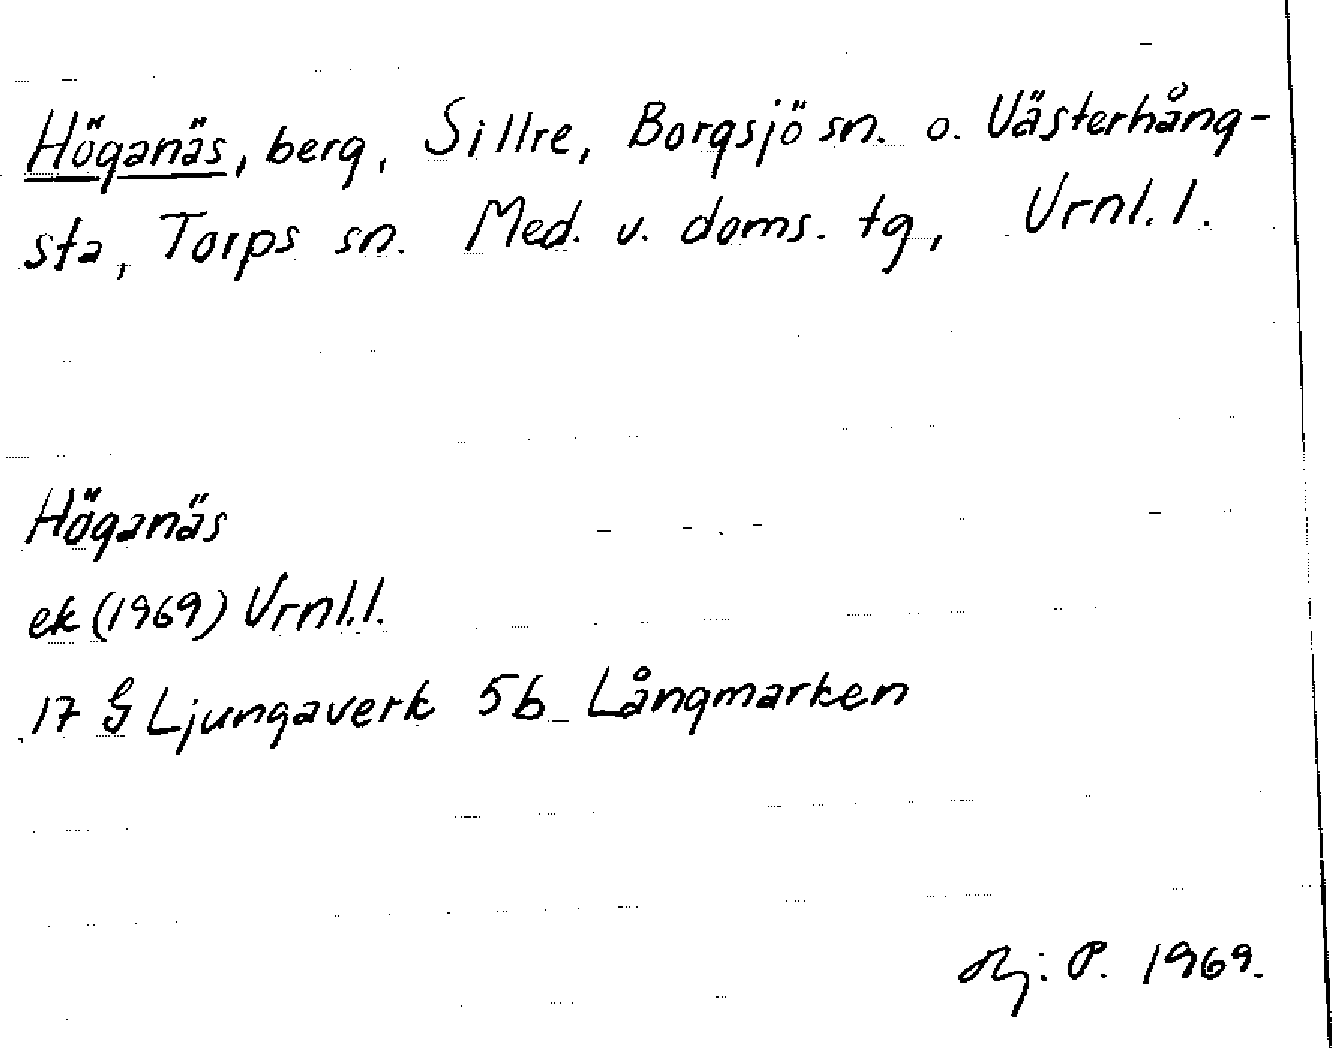 Höganäs, berg, Sillre, Borgsjö sn. o. Västerhång-
sta, Torps sn. Med. v. doms. tg, Vrnl. l.
Höganäs
ek (1969) Vrnl.l.
17 G Ljungaverk 5b Långmarken
P. 1969.